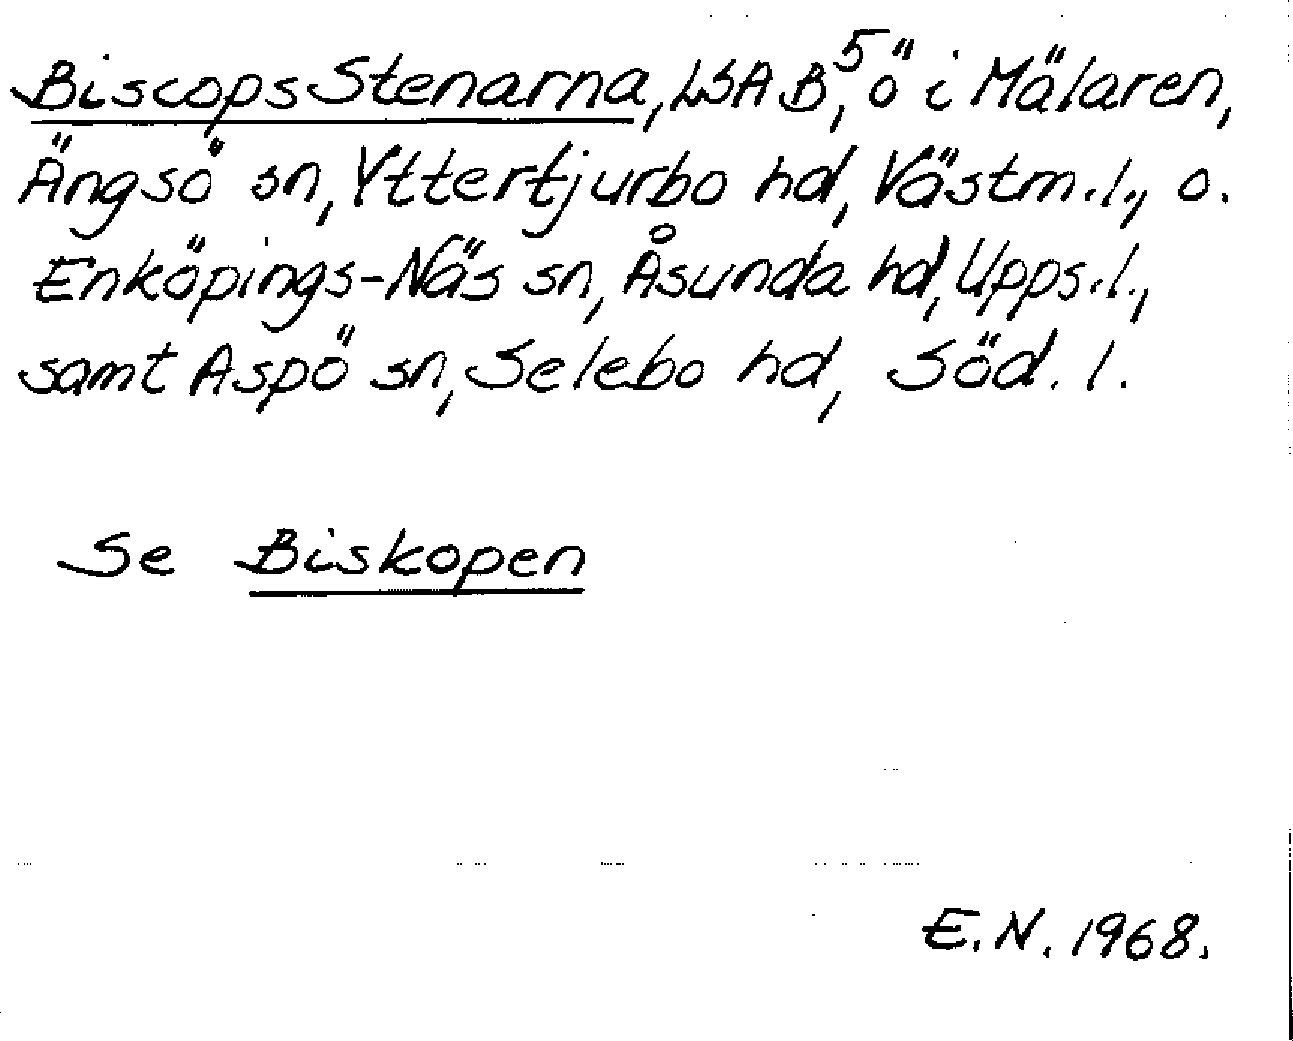 Biscops Stenarna, LSA B⁵, ö i Mälaren,
Ängsö sn, Yttertjurbo hd, Västm. l., o.
Enköpings-Näs sn, Åsunda hd, Upps. l.,
samt Aspö sn, Selebo hd, Söd. l.
Se Biskopen
E. N. 1968.